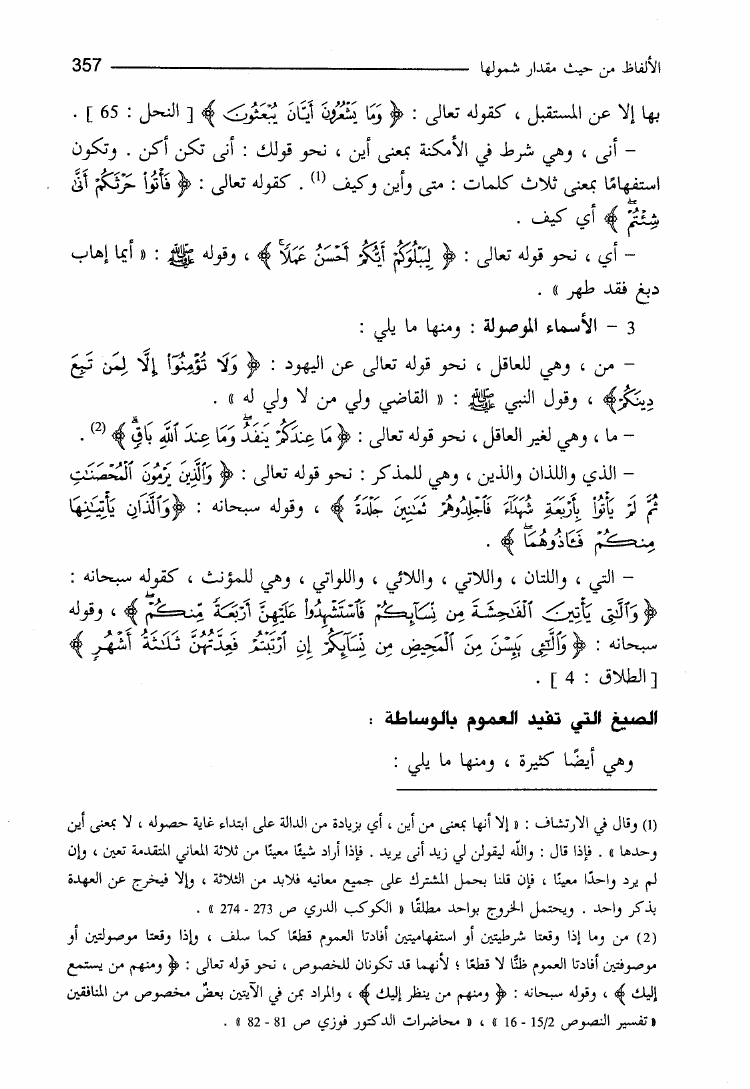 الألفاظ من حيث مقدار شمولها 357
بها إلا عن المستقبل ، كقوله تعالى : ﴿ وَمَا يَشْعُرُونَ أَيَّانَ يُبْعَثُونَ ﴾ [ النحل : 65 ] .
– أنى ، وهي شرط في الأمكنة بمعنى أين ، نحو قولك : أنى تكن أكن . وتكون
استفهامًا بمعنى ثلاث كلمات : متى وأين وكيف (1) . كقوله تعالى : ﴿ فَأْتُوا۟ حَرْثَكُمْ أَنَّىٰ
شِئْتُمْ ﴾ أي كيف .
– أي ، نحو قوله تعالى : ﴿ لِيَبْلُوَكُمْ أَيُّكُمْ أَحْسَنُ عَمَلًا ﴾ ، وقوله ﷺ : « أيما إهاب
دبغ فقد طهر » .
3 – الأسماء الموصولة : ومنها ما يلي :
– من ، وهي للعاقل ، نحو قوله تعالى عن اليهود : ﴿ وَلَا تُؤْمِنُوٓا۟ إِلَّا لِمَن تَبِعَ
دِينَكُمْ ﴾ ، وقول النبي ﷺ : « القاضي ولي من لا ولي له » .
– ما ، وهي لغير العاقل ، نحو قوله تعالى : ﴿ مَا عِندَكُمْ يَنفَدُ وَمَا عِندَ ٱللَّهِ بَاقٍ ﴾ (2) .
– الذي واللذان والذين ، وهي للمذكر : نحو قوله تعالى : ﴿ وَٱلَّذِينَ يَرْمُونَ ٱلْمُحْصَنَٰتِ
ثُمَّ لَمْ يَأْتُوا۟ بِأَرْبَعَةِ شُهَدَآءَ فَٱجْلِدُوهُمْ ثَمَٰنِينَ جَلْدَةً ﴾ ، وقوله سبحانه : ﴿ وَٱلَّذَانِ يَأْتِيَٰنِهَا
مِنكُمْ فَـَٔاذُوهُمَا ﴾ .
– التي ، واللتان ، واللاتي ، واللائي ، واللواتي ، وهي للمؤنث ، كقوله سبحانه :
﴿ وَٱلَّٰتِى يَأْتِينَ ٱلْفَٰحِشَةَ مِن نِّسَآئِكُمْ فَٱسْتَشْهِدُوا۟ عَلَيْهِنَّ أَرْبَعَةً مِّنكُمْ ﴾ ، وقوله
سبحانه : ﴿ وَٱلَّٰٓـِٔى يَئِسْنَ مِنَ ٱلْمَحِيضِ مِن نِّسَآئِكُمْ إِنِ ٱرْتَبْتُمْ فَعِدَّتُهُنَّ ثَلَٰثَةُ أَشْهُرٍ ﴾
[ الطلاق : 4 ] .
الصيغ التي تفيد العموم بالوساطة :
وهي أيضًا كثيرة ، ومنها ما يلي :
(1) وقال في الارتشاف : « إلا أنها بمعنى من أين ، أي بزيادة من الدالة على ابتداء غاية حصوله ، لا بمعنى أين
وحدها » . فإذا قال : والله ليقولن لي زيد أنى يريد . فإذا أراد شيئًا معينًا من ثلاثة المعاني المتقدمة تعين ، وإن
لم يرد واحدًا معينًا ، فإن قلنا بحمل المشترك على جميع معانيه فلابد من الثلاثة ، وإلا فيخرج عن العهدة
بذكر واحد . ويحتمل الخروج بواحد مطلقًا « الكوكب الدري ص 273 - 274 » .
(2) من وما إذا وقعتا شرطيتين أو استفهاميتين أفادتا العموم قطعًا كما سلف ، وإذا وقعتا موصولتين أو
موصوفتين أفادتا العموم ظنًّا لا قطعًا ؛ لأنهما قد تكونان للخصوص ، نحو قوله تعالى : ﴿ ومنهم من يستمع
إليك ﴾ ، وقوله سبحانه : ﴿ ومنهم من ينظر إليك ﴾ ، والمراد بمن في الآيتين بعضٌ مخصوص من المنافقين
« تفسير النصوص 15/2 - 16 » ، « محاضرات الدكتور فوزي ص 81 - 82 » .